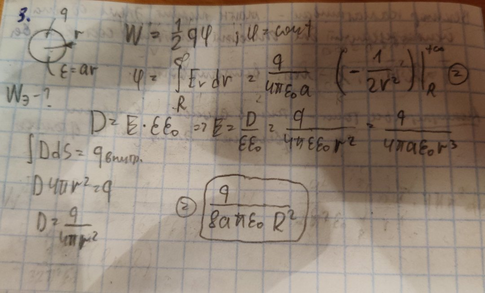 3. q r ε=ar
W = 1/2 qφ ; φ=const
Wэ-?
φ = ∫_R^∞ E_r dr = q/(4πε₀a) (-1/(2r²))|_R^{+∞} ②
D = E·εε₀ => E = D/(εε₀) = q/(4πεε₀r²) = q/(4πaε₀r³)
∫DdS = q внутр.
D4πr²=q
D = q/(4πr²)
② q/(8aπε₀R²)